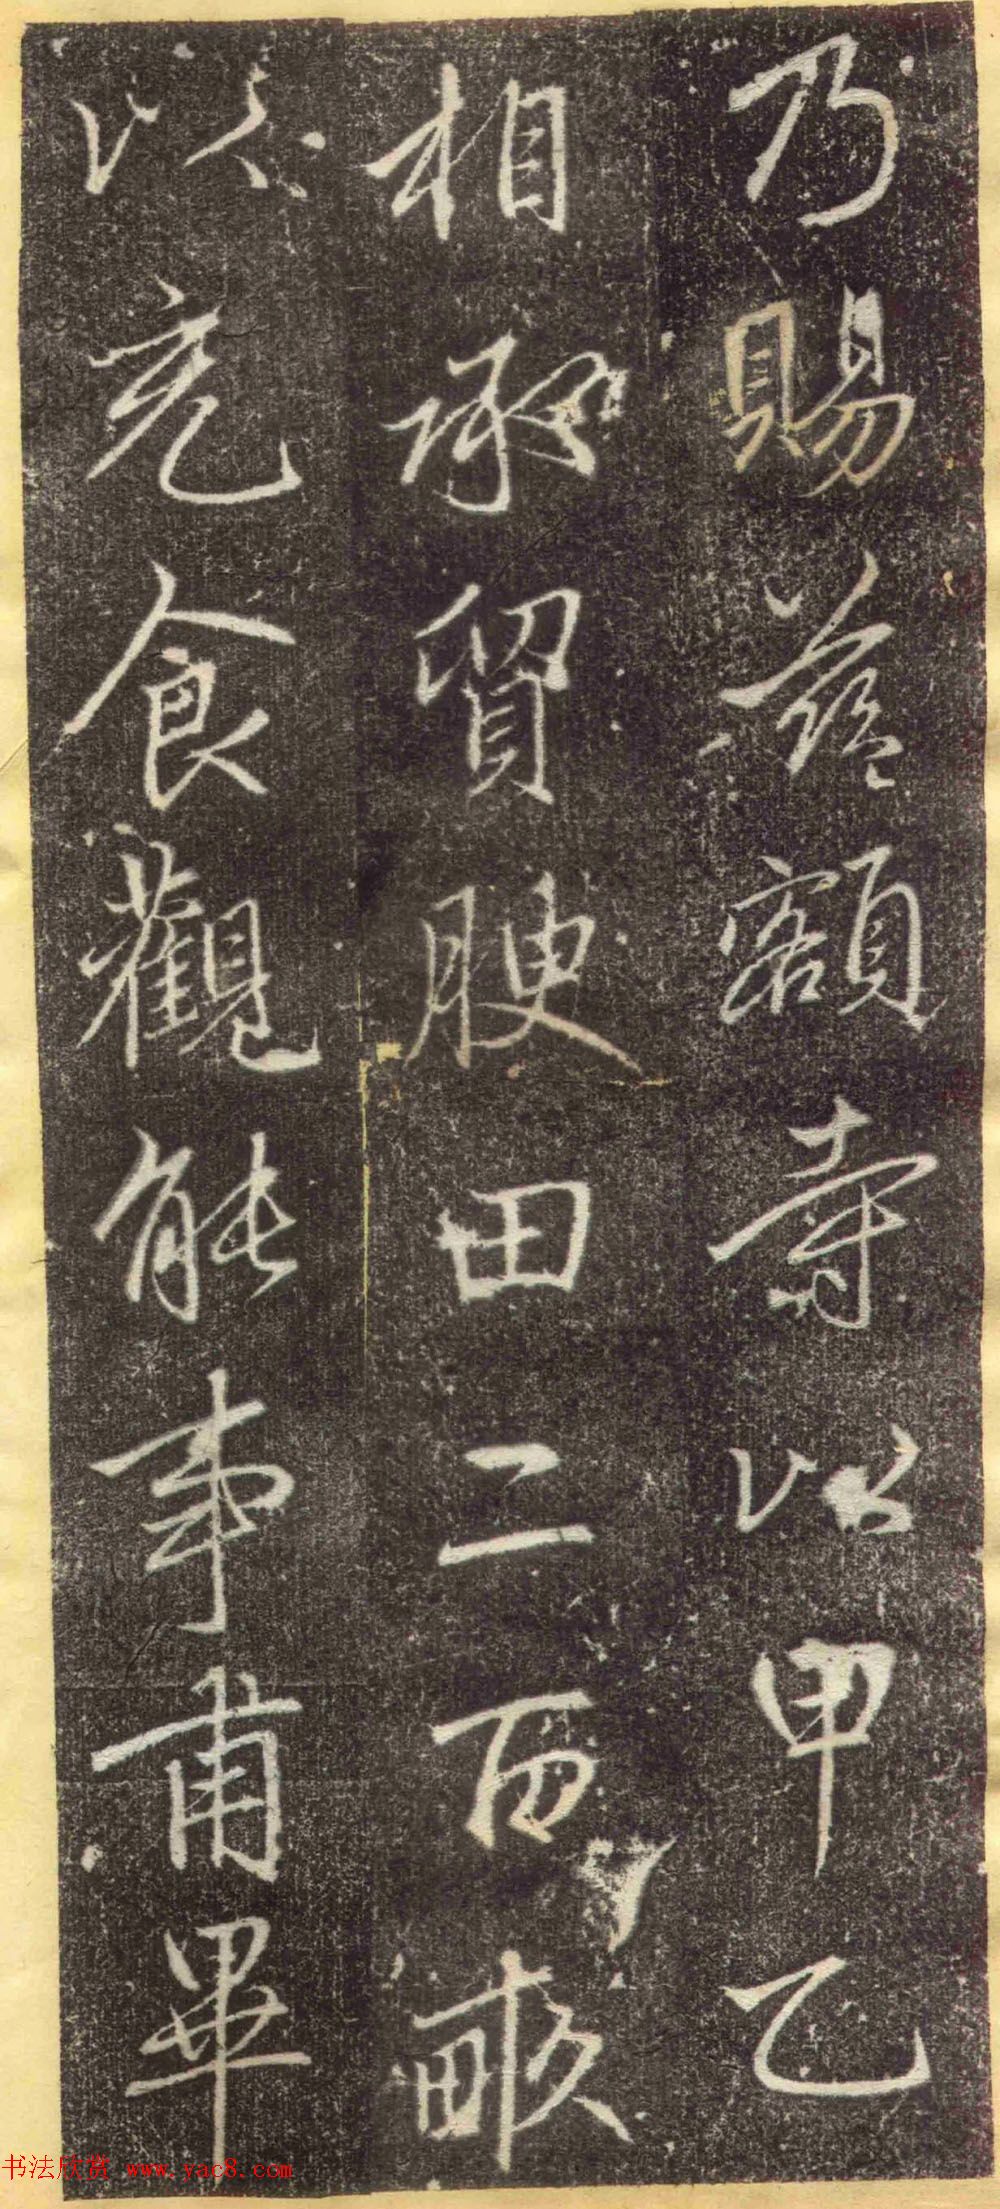 乃賜藍額寺以甲乙
相承貿腴田二百畝
以充食觀能事甫畢
书法欣赏 www.yac8.com